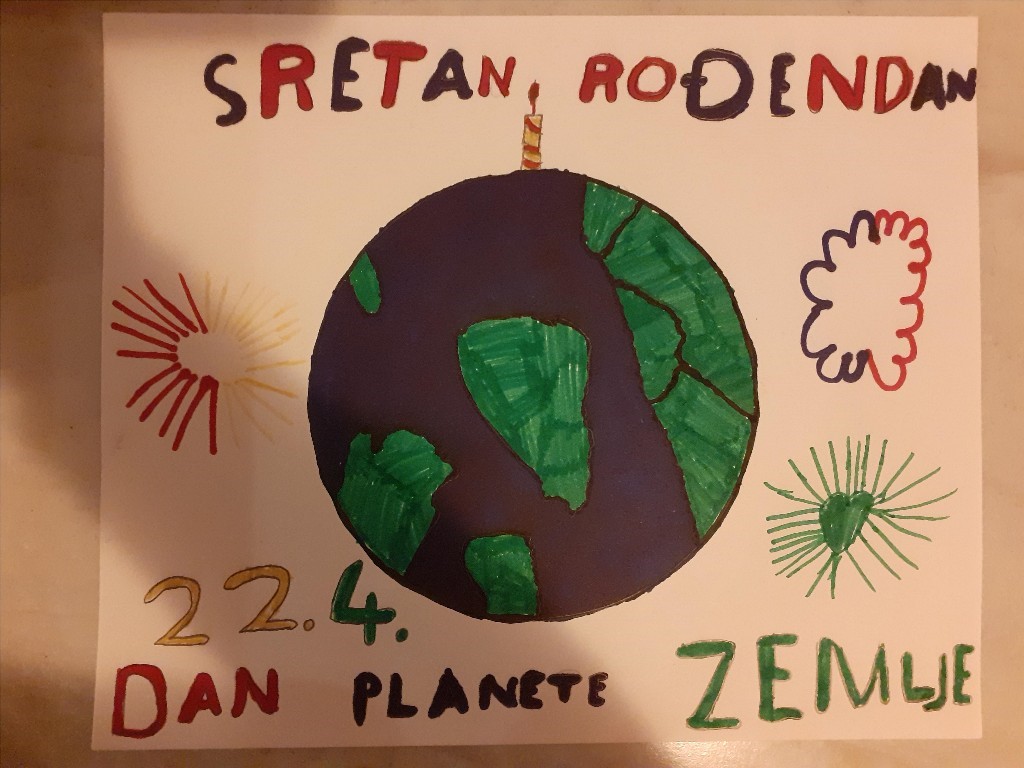 SRETAN ROĐENDAN
22.4.
DAN PLANETE ZEMLJE